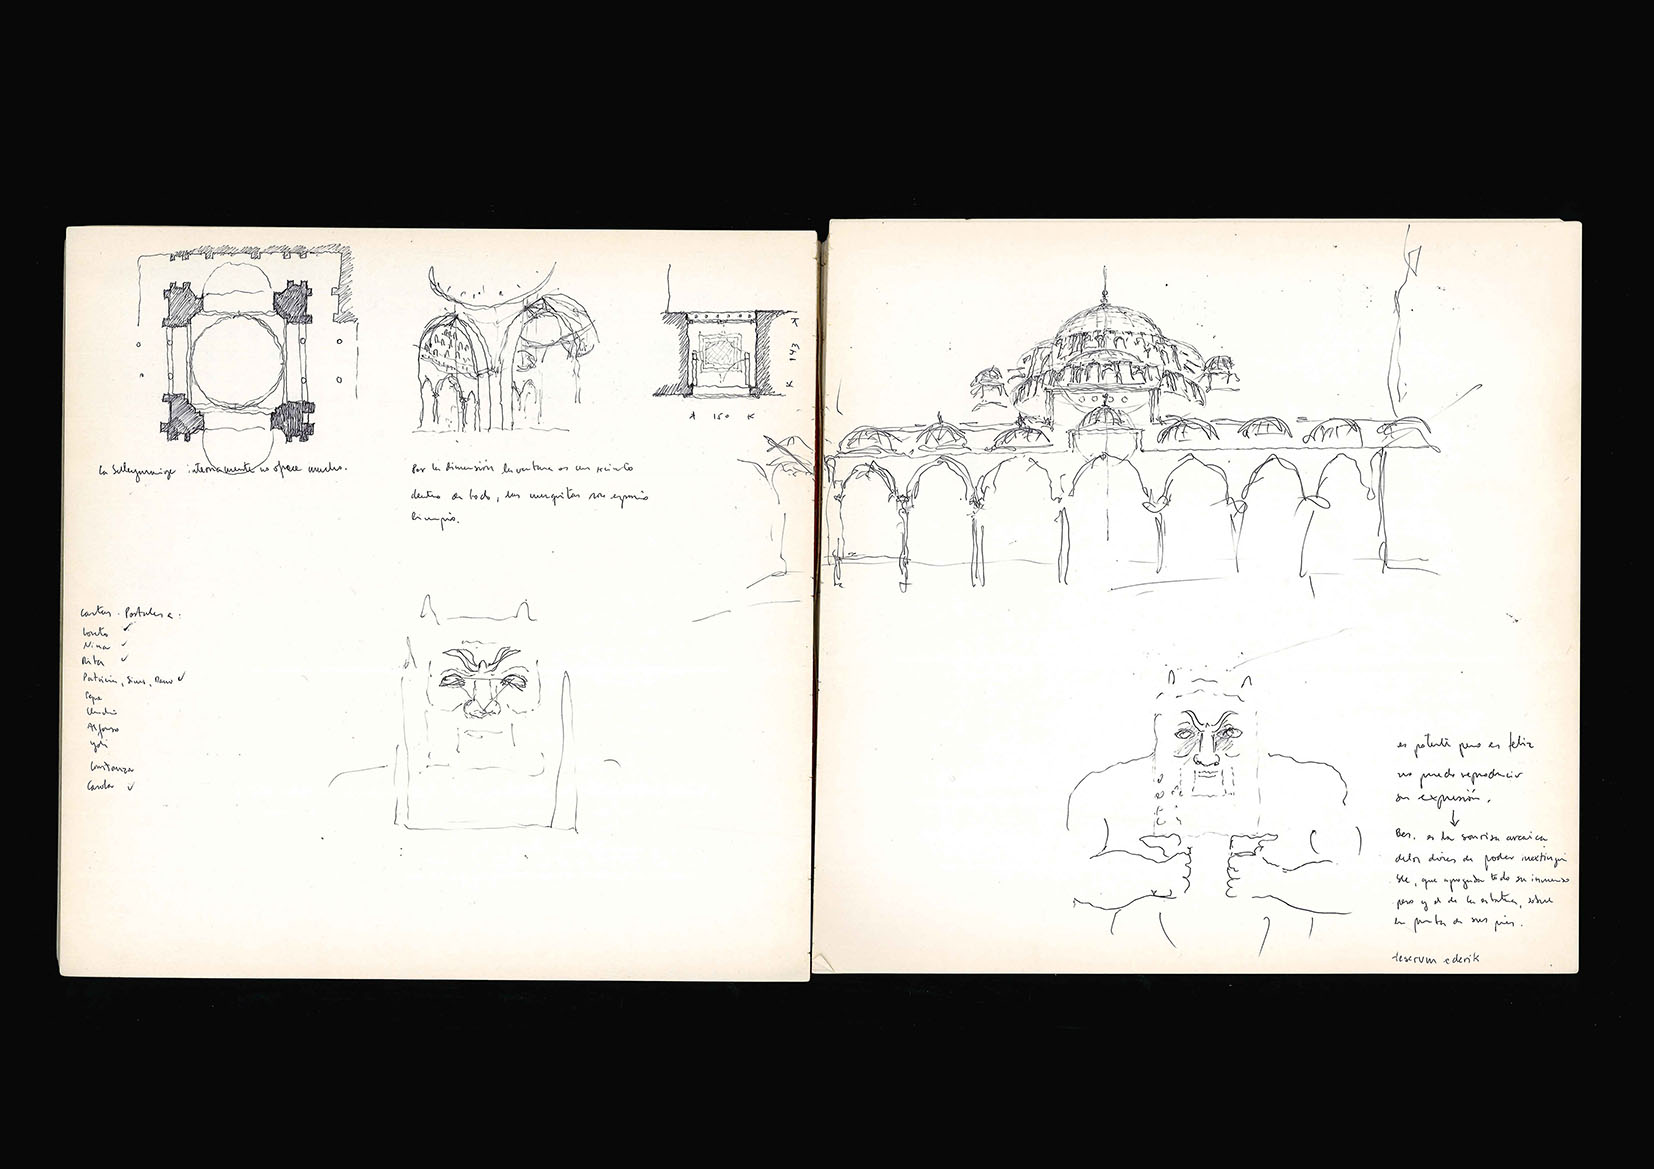 la Suleymaniye internamente no ofrece mucho.
Por la dimensión la ventana es un recinto
dentro de todo, las mezquitas son espacio
limpio.
A 150 K
K 143 K
cartas. Postales a.
Loreto ✓
Nina ✓
Rita ✓
Patricia, ✓
Pepe
Claudio
Alfonso
Yoli
Constanza
Carola ✓
es potente pero es feliz
no puedo reproducir
su expresión.
↓
Bes. es la sonrisa arcaica
de los dioses de poder inextingui
ble, que apoyada todo su inmenso
peso y el de la estatua, sobre
la punta de sus pies.
teserum ederik